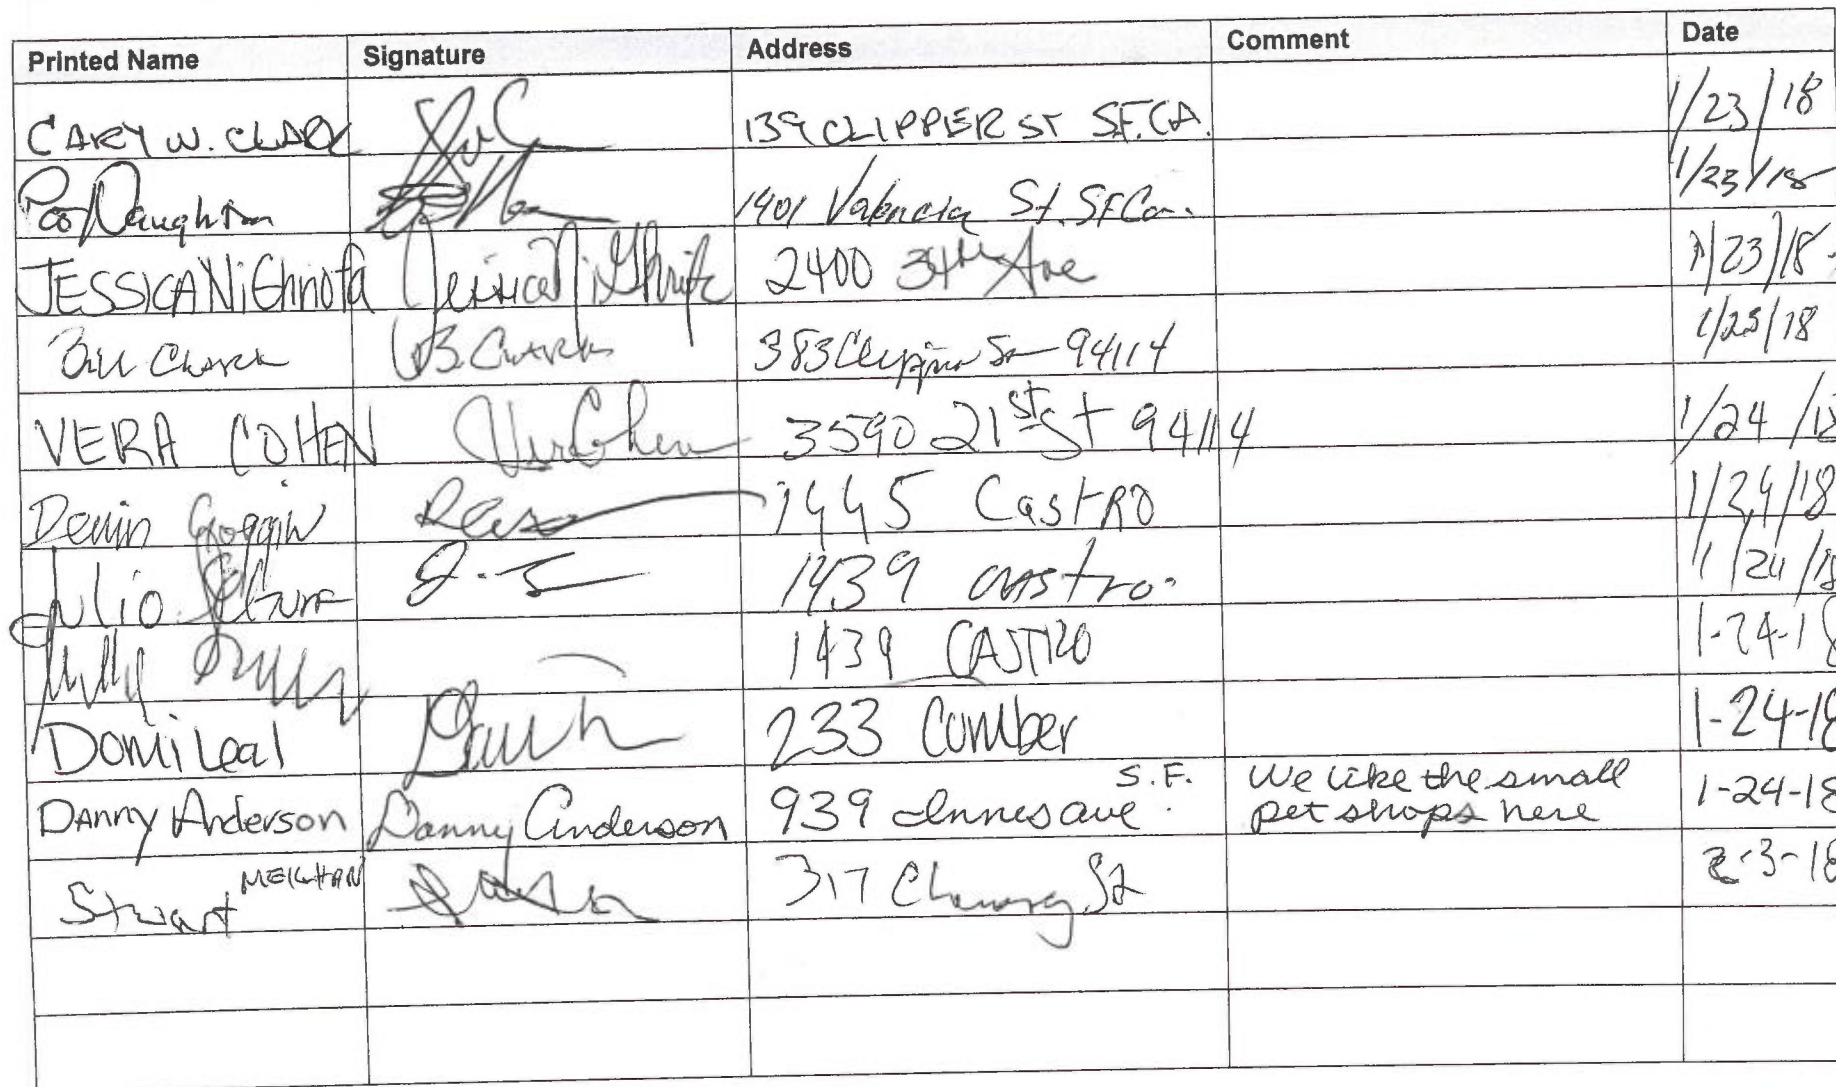 Printed Name Signature Address Comment Date
CARY W. CLARK 139 CLIPPER ST S.F. CA. 1/23/18
Naughton 1401 Valencia St. SF Ca. 1/23/18
JESSICA Ni Jessica Ni 2400 34th Ave 1/23/18
Bill Clark B. Clark 383 Clipper St 94114 1/23/18
VERA COHEN Vera Cohen 3590 21st St 94114 1/24/18
Devin Goggin 1445 Castro 1/24/18
Julio 1439 castro. 1/24/18
1439 CASTRO 1-24-18
Domi Leal 233 Cumber 1-24-18
Danny Anderson Danny Anderson 939 Innes ave S.F. We like the small pet shops here 1-24-18
Stuart MEIGHAN 317 St 2-3-18